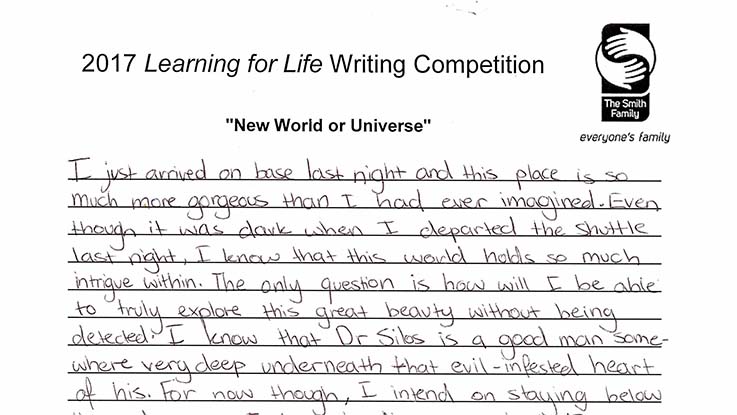 2017 Learning for Life Writing Competition
The Smith
Family
everyone's family
"New World or Universe"
I just arrived on base last night and this place is so
much more gorgeous than I had ever imagined. Even
though it was dark when I departed the shuttle
last night, I know that this world holds so much
intrigue within. The only question is how will I be able
to truly explore this great beauty without being
detected? I know that Dr Silos is a good man some-
where very deep underneath that evil-infested heart
of his. For now though, I intend on staying below